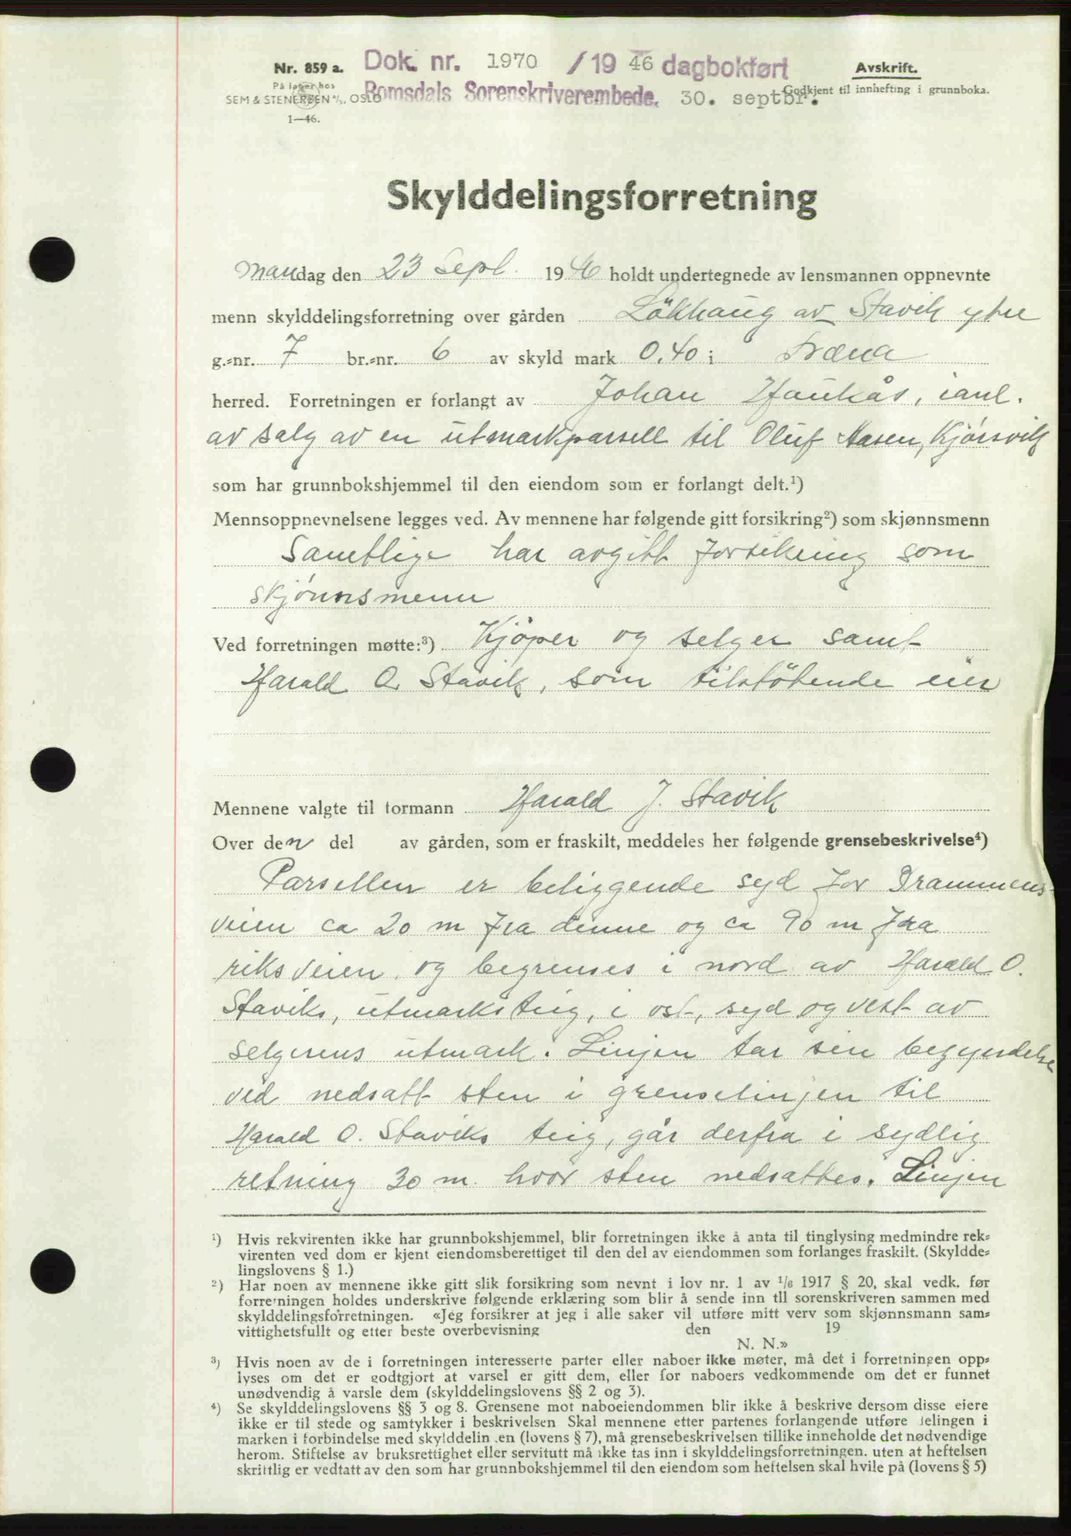 Nr. 859 a.
På lager hos
SEM & STENERSEN A/S, OSLO
1—46.
Dok. nr. 1970 / 19 46 dagbokført
Romsdals Sorenskriverembede, 30. septbr.
Avskrift.
Godkjent til innhefting i grunnboka.
Skylddelingsforretning
Mandag den 23 Sept. 19 46 holdt undertegnede av lensmannen oppnevnte
menn skylddelingsforretning over gården Lökhaug av Stavik ytre
g.-nr. 7 br.-nr. 6 av skyld mark 0.40 i Fræna
herred. Forretningen er forlangt av Johan Haukås, i anl.
av salg av en utmarkparsell til Oluf Aasen, Kjørsvik
som har grunnbokshjemmel til den eiendom som er forlangt delt.¹)
Mennsoppnevnelsene legges ved. Av mennene har følgende gitt forsikring²) som skjønnsmenn
Samtlige har avgitt forsikring som
skjønnsmenn
Ved forretningen møtte:³) Kjøper og selger samt
Harald O. Stavik, som tilstötende eier
Mennene valgte til formann Harald J. Stavik
Over den del av gården, som er fraskilt, meddeles her følgende grensebeskrivelse⁴)
Parsellen er beliggende syd for Drammens-
veien ca 20 m fra denne og ca 90 m fra
riksveien, og begrenses i nord av Harald O.
Staviks, utmarksteig, i ost, syd og vest av
selgerens utmark. Linjen tar sin begyndelse
ved nedsatt sten i grenselinjen til
Harald O. Staviks teig, går derfra i sydlig
retning 30 m. hvor sten nedsattes. Linjen
¹) Hvis rekvirenten ikke har grunnbokshjemmel, blir forretningen ikke å anta til tinglysing medmindre rek-
virenten ved dom er kjent eiendomsberettiget til den del av eiendommen som forlanges fraskilt. (Skyldde-
lingslovens § 1.)
²) Har noen av mennene ikke gitt slik forsikring som nevnt i lov nr. 1 av 1/6 1917 § 20, skal vedk. før
forretningen holdes underskrive følgende erklæring som blir å sende inn til sorenskriveren sammen med
skylddelingsforretningen. «Jeg forsikrer at jeg i alle saker vil utføre mitt verv som skjønnsmann sam-
vittighetsfullt og etter beste overbevisning den 19
N. N.»
³) Hvis noen av de i forretningen interesserte parter eller naboer ikke møter, må det i forretningen opp-
lyses om det er godtgjort at varsel er gitt dem, eller for naboers vedkommende om det er funnet
unødvendig å varsle dem (skylddelingslovens §§ 2 og 3).
⁴) Se skylddelingslovens §§ 3 og 8. Grensene mot naboeiendommen blir ikke å beskrive dersom disse eiere
ikke er til stede og samtykker i beskrivelsen Skal mennene etter partenes forlangende utføre delingen i
marken i forbindelse med skylddelin en (lovens § 7), må grensebeskrivelsen tillike inneholde det nødvendige
herom. Stiftelse av bruksrettighet eller servitutt må ikke tas inn i skylddelingsforretningen, uten at heftelsen
skriftlig er vedtatt av den som har grunnbokshjemmel til den eiendom som heftelsen skal hvile på (lovens § 5)